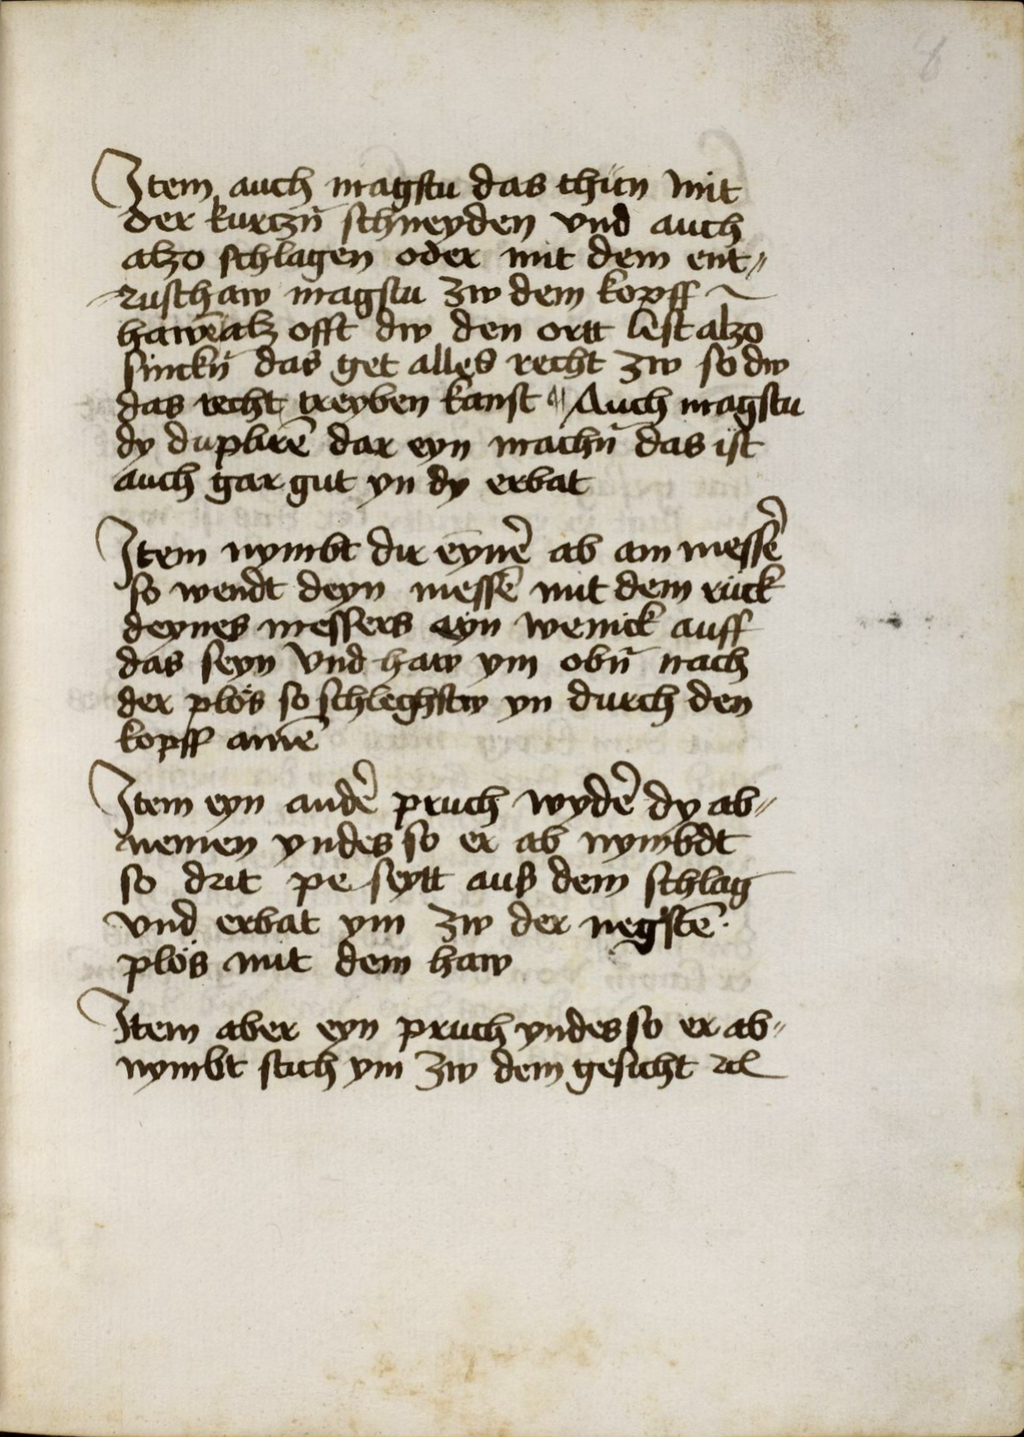 8
Item auch magstu das thün mit
der kurczn̄ schneyden vnd auch
alzo schlagen oder mit dem ent⸗
rusthaw magstu zw dem kopff
hawē alz offt dw den ortt lest alzo
sinckn̄ das get alles recht zw so dw
das recht treyben kanst ¶ Auch magstu
dy duplirē dar eyn machn̄ das ist
auch gar gut yn dy erbat
Item nymbt dir eynē ab am messē
so wendt deyn messē mit dem rück
deynes messers eyn wenick auff
das seyn vnd haw ym obn̄ nach
der plös so schleghstw yn durch den
kopff amē
Item eyn andē pruch wydē dy ab⸗
nemen yndes so er ab nymbdt
so drit pe seytt aus dem schlag
vnd erbat ym zw der negstē
plös mit dem haw
Item aber eyn pruch yndes so er ab⸗
nymbt stich ym zw dem gesicht ꝛcl